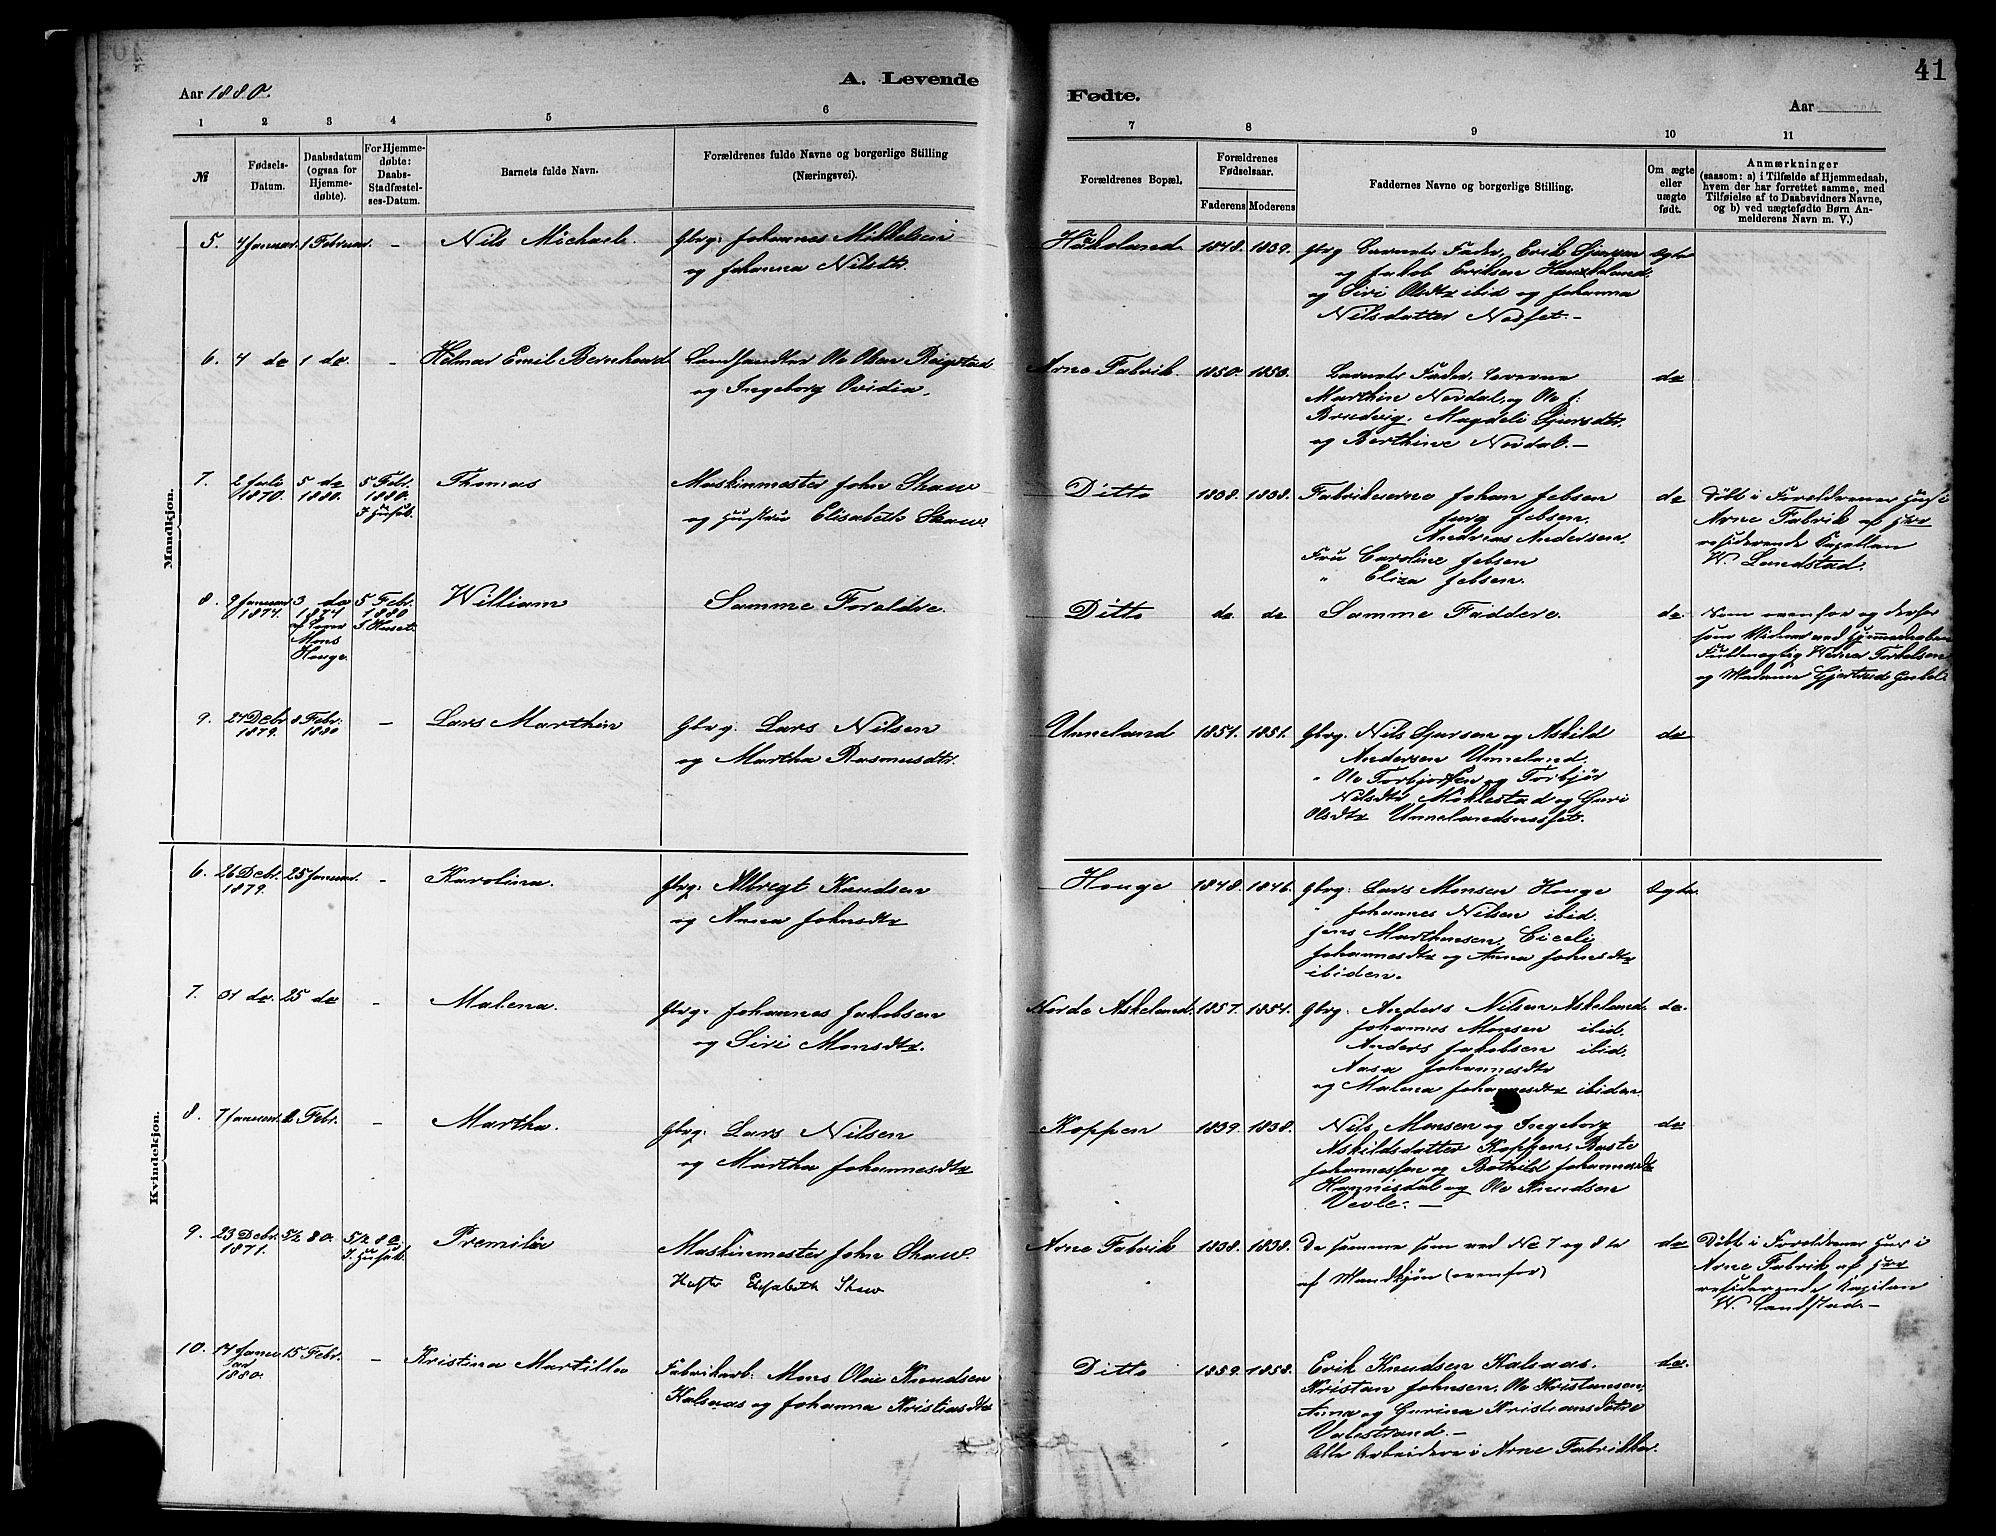 41
Aar 1880.
A. Levende
Fødte.
Aar
1 2 3 4 5 6
7 8 9 10 11
№
Fødsels-
Datum.
Daabsdatum
(ogsaa for
Hjemme-
døbte).
For Hjemme-
døbte:
Daabs-
Stadfæstel-
ses-Datum.
Barnets fulde Navn.
Forældrenes fulde Navne og borgerlige Stilling
(Næringsvei).
Forældrenes Bopæl.
Forældrenes
Fødselsaar.
Faderens Moderens
Faddernes Navne og borgerlige Stilling.
Om ægte
eller
uægte
født.
Anmærkninger
(saasom: a) i Tilfælde af Hjemmedaab,
hvem der har forrettet samme, med
Tilføielse af to Daabsvidners Navne,
og b) ved uægtefødte Børn An-
melderens Navn m. V.)
Mandkjøn.
5. 4 Januar. 1 Februar. - Nils Michael. Gbrg: Johannes Mikkelsen
og Johanna Nilsdtr.
Haukeland. 1848. 1839. Gbrg Barnets Fader, Erik
og Jakob Eriksen Haukeland.
og Siri Olsdtr ibid og Johanna
Nilsdatter Nesset. -
ægte
6. 4 do 1 do. - Hilmar Emil Bernhard Landhandler Ole Olsen Reigstad
og Ingeborg Ovidia.
Arne Fabrik. 1850. 1850. Barnets Fader,
Marthin Nordal, og Ole J.
Brudvig, Magdeli
og Berthine Nordal. -
do
7. 2
1870. 5 do
1880. 5 Febr.
1880.
Thomas Maskinmester John Shaw
og Hustru Elisabeth Shaw.
Ditto 1838. 1838. Fabrikeierne Johan Jebsen
Jurg Jebsen,
Andreas Andersen.
Fru Caroline Jebsen
" Eliza Jebsen.
do Døbt i Forældrenes Hus i
Arne Fabrik af Hrr
residerende Kapellan
W. Landstad.
8. 9 Januar
1874. 3 do
1874
af
Mons
Houge. 5 Febr.
1880
i Huset. William Samme Foraldre.
Ditto do. do Samme Faddere. do.
Som ovenfor og desfor
som Vidner ved Hjemmedaaben
Fuldmægtig Werner Torkelsen
og Madame Gjertrud
9. 27 Debr
1879. 8 Febr.
1880 - Lars Marthin Gbrg. Lars Nilsen
og Martha Rasmusdtr.
Unneland 1854. 1851. Gbrg. Nils Gjersen og Askild
Andersen Unneland.
" Ole Torbjørsen og Torbjør
Nilsdtr Mæhlestad og Guri
Olsdtr Unnelandsnesset.
do
Kvindekjøn.
6. 26 Debr.
1879. 25 Januar. - Karolina. Gbrg: Albregt Knudsen
og Anna Johnsdtr
Houge 1848. 1846. Gbrg: Lars Monsen Houge
" Johannes Nilsen ibid.
Jens Marthinsen, Ciceli
Johannesdtr og Anna Johnsdtr
ibiden.
ægte.
7. 31 do. 25 do - Malena. Gbrg: Johannes Jakobsen
og Siri Monsdtr.
Nordr Askeland. 1857. 1854. Gbrg: Anders Nilsen Askeland.
Johannes Monsen ibid.
Anders Jakobsen ibid.
Aasa Johannesdtr
og Malena Johannesdtr ibiden.
do.
8. 7 Januar. 2 Febr. - Martha. Gbrg. Lars Nilsen
og Martha Johannesdtr
Koppen 1839. 1838. Nils Monsen og Ingeborg
Askildsdatter Koppen, Baste
Johannessen og Bothild Johannesdtr
Hannisdal og Ole Knudsen
Vevle. -
do
9. 23 Debr.
1871. 5/2 80. 5/2 80
Premilia Maskinmester John Shaw.
Hustru Elisabeth Shaw
Arne Fabrik 1838. 1838. De samme som ved No 7 og 8
af Mandkjøn (ovenfor)
do Døbt i Forældrenes Hus i
Arne Fabrik, af Hrr
residerende Kapelan
W. Landstad. -
10. 14 Janu-
ar
1880. 15 Febr. - Kristina Martille Fabrikarb: Mons Olai Knudsen
Kalsaas og Johanna Kristiansdtr
Ditto 1859. 1858. Erik Knudsen Kalsaas.
Kristian Johnsen, Ole Kristiansen,
Anna og Gurina Kristiansdøtre
Valestrand. -
Alle Arbeidere i Arne Fabrikker.
do.